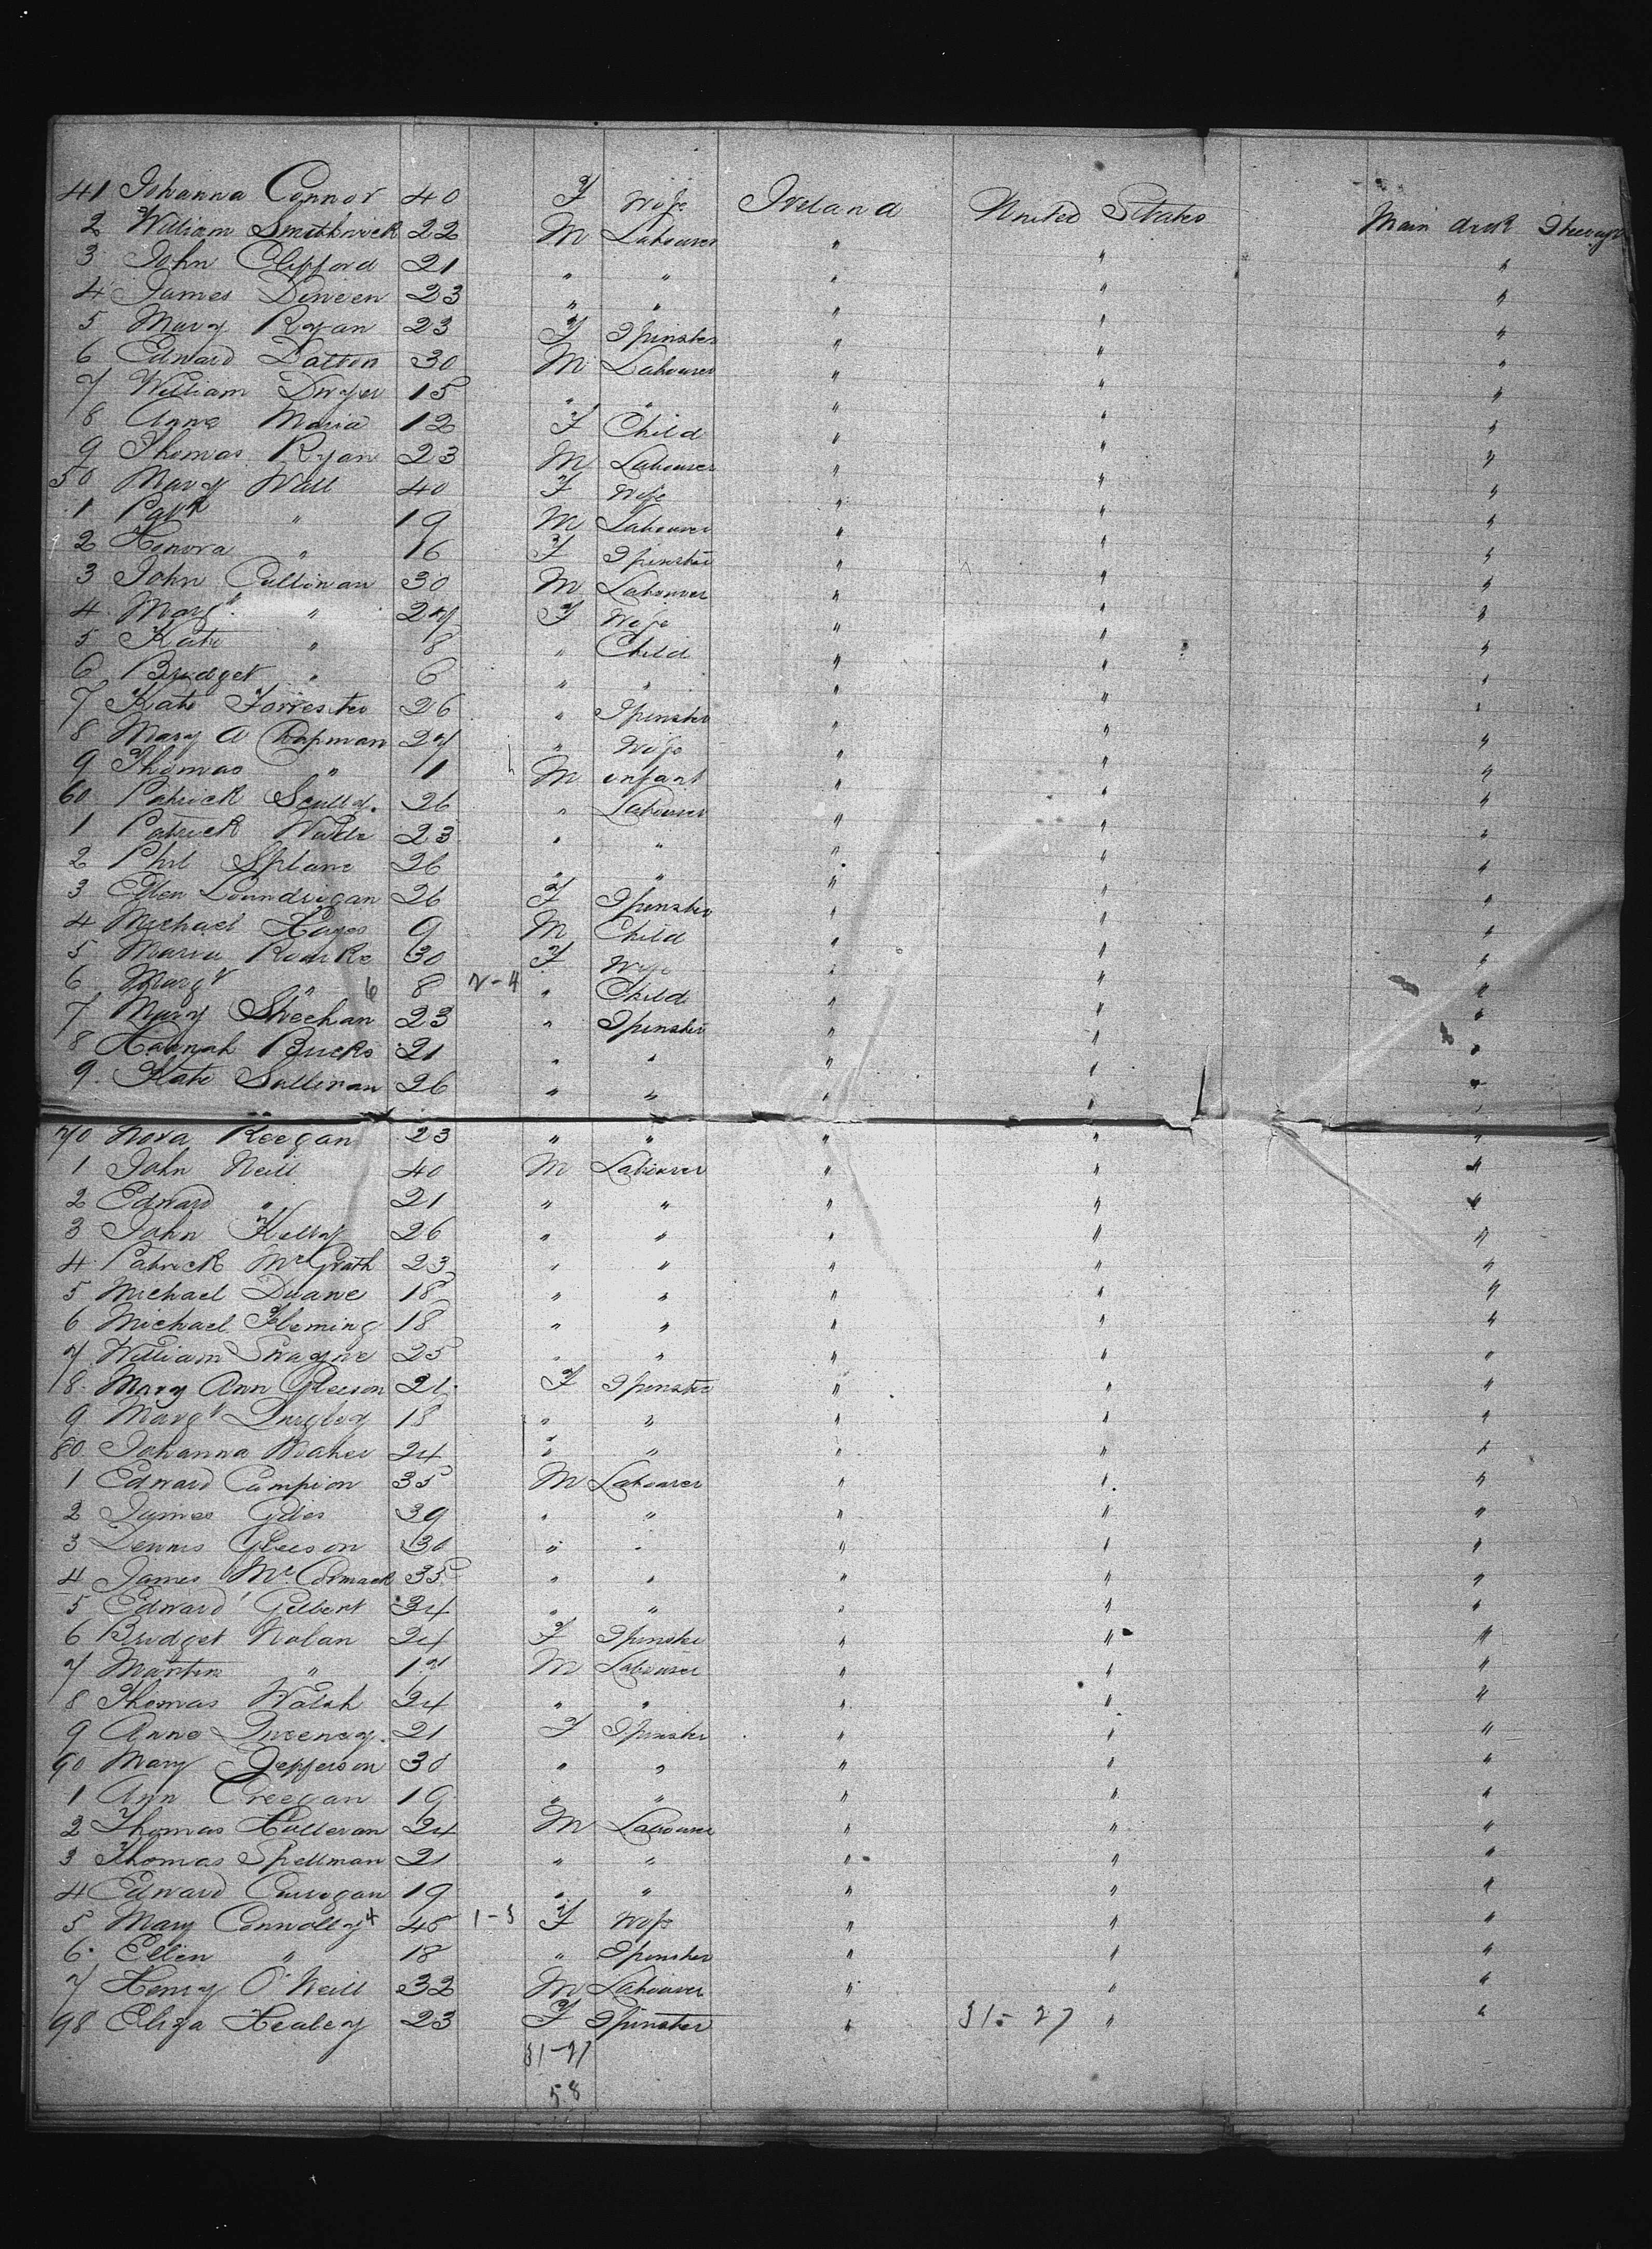 41 Johanna Connor 40 F Wife Ireland United States Main deck Steerage
2 William Smithwick 22 M Labourer " " "
3 John Clifford 21 " " " " "
4 James Dineen 23 " " " " "
5 Mary Ryan 23 F Spinster " " "
6 Edward Dalton 30 M Labourer " " "
7 William Dwyer 15 " " " " "
8 Anne Maria 12 F Child " " "
9 Thomas Ryan 23 M Labourer " " "
50 Mary Wall 40 F Wife " " "
1 Patk " 19 M Labourer " " "
2 Honora " 16 F Spinster " " "
3 John Cullinan 30 M Labourer " " "
4 Margt " 27 F Wife " " "
5 Kate " 8 " Child " " "
6 Bridget " 6 " " " " "
7 Kate Forrester 26 " Spinster " " "
8 Mary A Chapman 27 " Wife " " "
9 Thomas " 1 M infant " " "
60 Patrick Scully 26 " Labourer " " "
1 Patrick Wade 23 " " " " "
2 Phil Splane 26 " " " " "
3 Ellen Loundrigan 26 F Spinster " " "
4 Michael Hayes 9 M Child " " "
5 Maria Rourke 30 F Wife " " "
6 Margt " 6 8 2-4 " Child " " "
7 Mary Sheehan 23 " Spinster " " "
8 Hannah Bucks 21 " " " " "
9 Kate Sullivan 26 " " " " "
70 Nora Keegan 23 " " " " "
1 John Neill 40 M Labourer " " "
2 Edward " 21 " " " " "
3 John Kelly 26 " " " " "
4 Patrick McGrath 23 " " " " "
5 Michael Duane 18 " " " " "
6 Michael Fleming 18 " " " " "
7 William Swayne 25 " " " " "
8 Mary Ann Gleeson 21 F Spinster " " "
9 Margt Quigley 18 " " " " "
80 Johanna Maher 24 " " " " "
1 Edward Campion 35 M Labourer " " "
2 James Giles 39 " " " " "
3 Dennis Gleeson 30 " " " " "
4 James McCormack 35 " " " " "
5 Edward Gilbert 34 " " " " "
6 Bridget Nolan 24 F Spinster " " "
7 Martin " 17 M Labourer " " "
8 Thomas Walsh 24 " " " " "
9 Anne Sweeney 21 F Spinster " " "
90 Mary Jefferson 30 " " " " "
1 Ann Creegan 19 " " " " "
2 Thomas Halleran 24 M Labourer " " "
3 Thomas Spellman 21 " " " " "
4 Edward Corrogan 19 " " " " "
5 Mary Connolly 4 45 1-3 F Wife " " "
6 Ellen " 18 " Spinster " " "
7 Henry O'Neill 32 M Labourer " " "
98 Eliza Healey 23 F Spinster " 31-27 " "
31-27
58